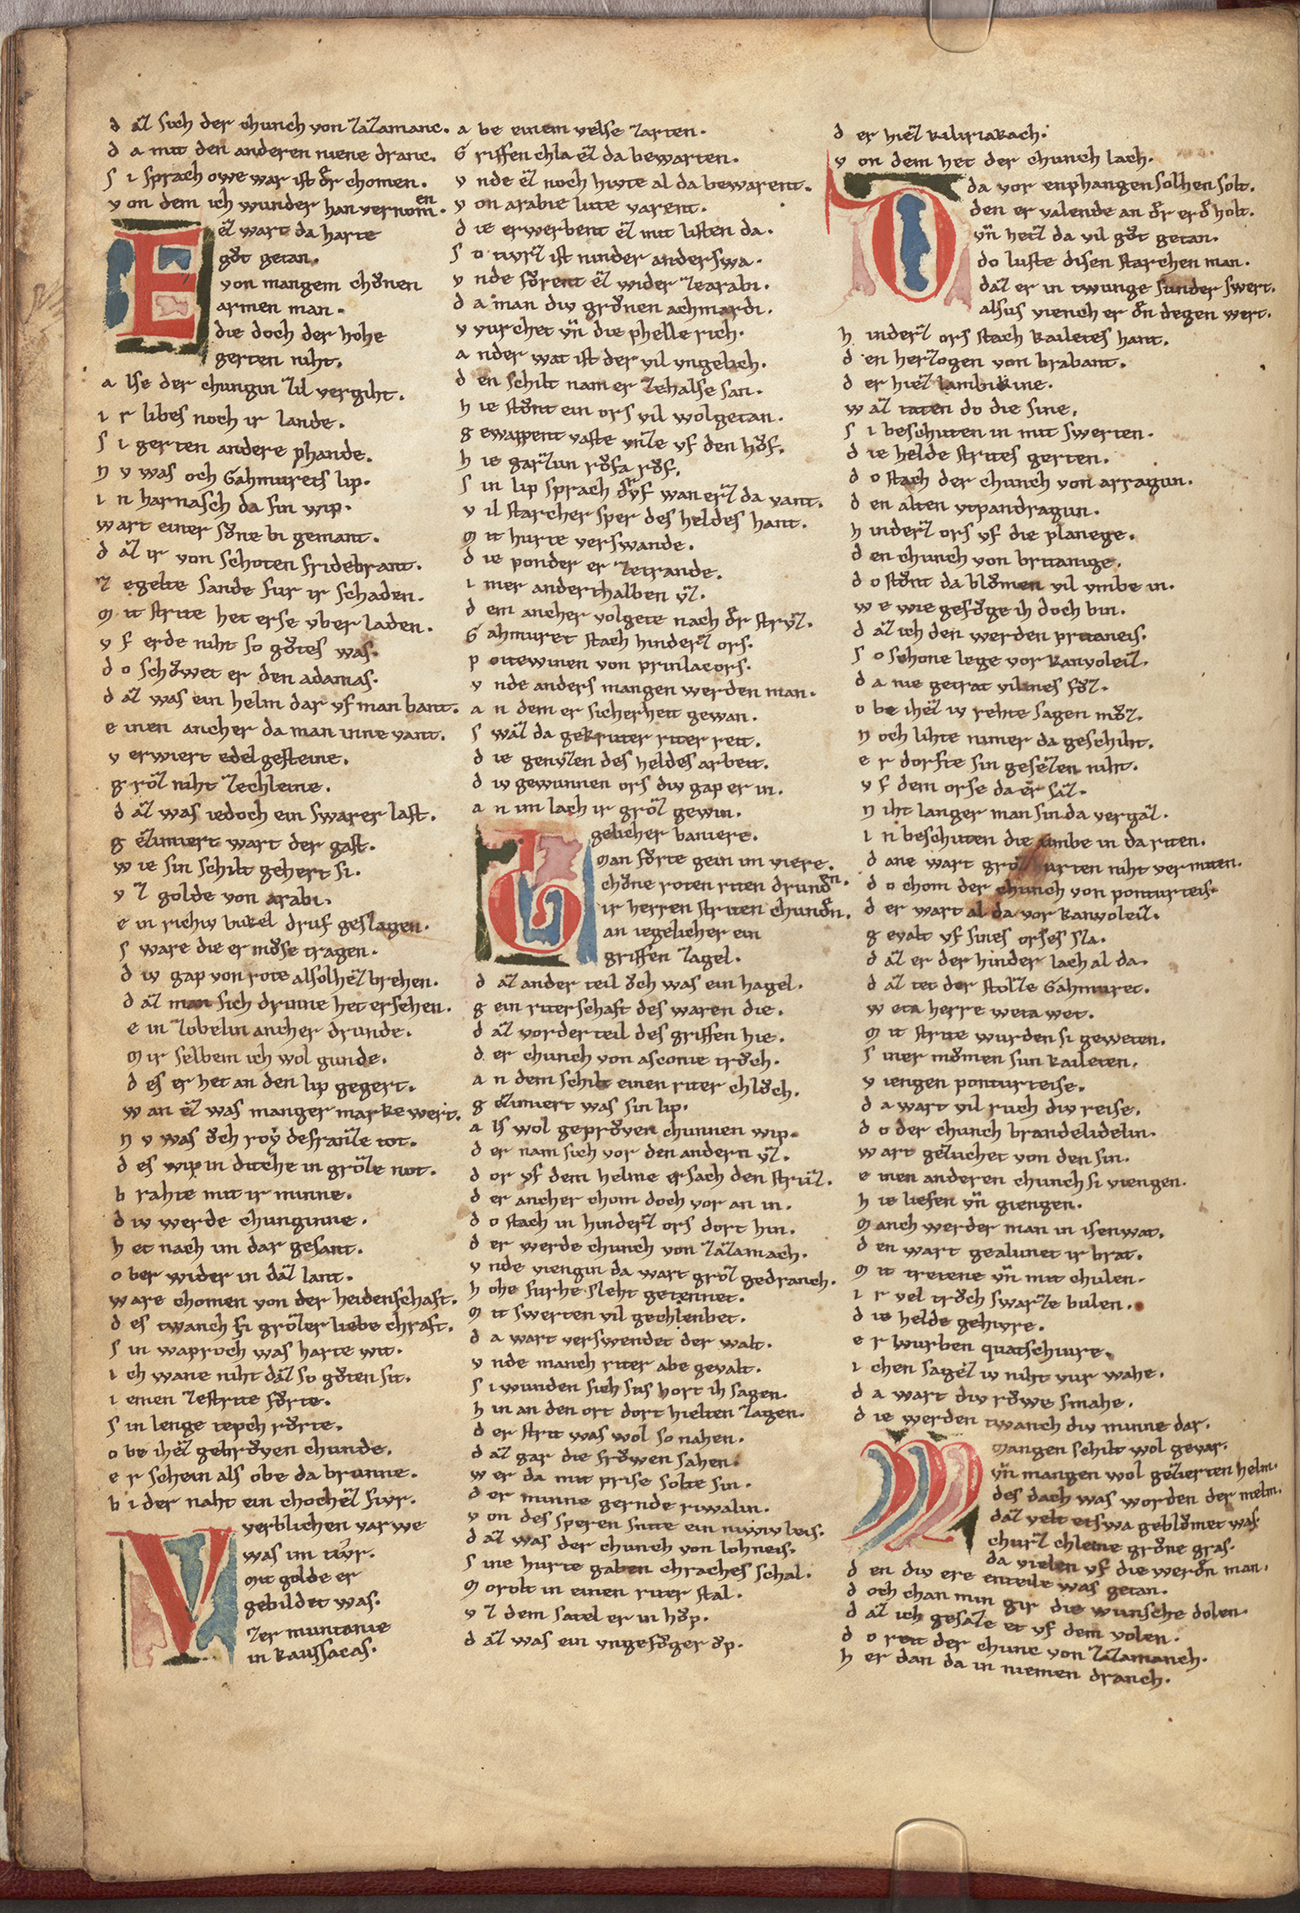 d az sich der chunch von zazamanc.
d a mit den anderen niene dranc.
S i sprach owe war ist d̾r chomen.
v on dem ich wunder han vernomen.
Ez wart da harte
gv̊t getan.
von mangem chv̊nen
armen man.
die doch der hohe
gerten niht.
a lse der chungin zil vergiht.
i r libes noch ir lande.
S i gerten andere phande.
N v was och Gahmurets lip.
i n harnasch da sin wip.
wart einer sv̊ne bi gemant.
d az ir von schoten fridebrant.
z egelte sande fur ir schaden.
m it strite het er se vber laden.
v f erde niht so gv̊tes was.
d o schŏwet er den adamas.
d az was ein helm dar vf man bant.
e inen ancher da man inne vant.
v erwiert edel gesteine.
g roz niht zechleine.
d az was iedoch ein swarer last.
g ezimiert wart der gast.
w ie sin schilt gehert si.
v z golde von arabi.
e in richiv bukel druf geslagen.
s ware die er mv̊se tragen.
d iv gap von rote alsolhez brehen.
d az man sich drinne het ersehen.
e in zobelin ancher drunde.
m ir selbem ich wol gunde.
d es er het an den lip gegert.
w an ez was manger marke wert.
N v was ŏch roy defranze tot.
d es wip in diche in groze not.
b rahte mit ir minne.
d iv werde chunginne.
h et nach im dar gesant.
o ber wider in daz lant.
ware chomen von der heidenschaft.
d es twanch si grozer liebe chraft.
S in wapruch was harte wit.
i ch wane niht daz so gv̊ten sit.
i emen zestrite fv̊rte.
s in lenge tepch rv̊rte.
o be ihez gebrv̊ven chunde.
e r schein als obe da brunne.
b i der naht ein chochez fivr.
verblichen varwe
was im tivr.
Mit golde er
gebildet was.
zer muntanie
in kaussacas.
a be einem velse zarten.
G riffen chla ez da bewarten.
v nde ez noch hivte al da bewarent.
v on arabie lute varent.
d ie erwerbent ez mit listen da.
s o tivrz ist ninder anderswa.
v nde fv̊rent ez wider zearabi.
d a man div grv̊nen achmardi.
v vurchet vn̄ die phelle rich.
a nder wat ist der vil vngelich.
d en schilt nam er zehalse san.
h ie stv̊nt ein ors vil wolgetan.
g ewappent vaste vnze vf den hv̊f.
h ie garzun rv̊fa rv̊f.
S in lip sprach drvf wan erz da vant.
v il starcher sper des heldes hant.
m it hurte verswande.
d ie ponder er zetrande.
i mer anderthalben vz.
d em ancher volgete nach d̾r struz.
G ahmuret stach hinderz ors.
p oitewinen von prinlacors.
v nde anders mangen werden man.
a n dem er sicherheit gewan.
s waz da gekruter riter reit.
d ie genvzen des heldes arbeit.
d iv gewunnen ors div gap er in.
a n im lach ir groz gewin.
Gelicher baniere.
man fv̊rte gein im viere.
chv̊ne roten riten drund̾n.
ir herren striten chund̾n.
an iegelicher ein
griffen zagel.
d az ander teil ŏch was ein hagel.
g ein riterschaft des waren die.
d az vorder teil des griffen hie.
d er chunch von asconie trŏch.
a n dem schilt einen riter chlŏch.
g ezimiert was sin lip.
a ls wol geprv̊ven chunnen wip.
d er nam sich vor den andern vz.
d or vf dem helme ersach den struz.
d er ancher chom doch vor an in.
d o stach in hinderz ors dort hin.
d er werde chunch von zazamach.
v nde viengin da wart groz gedranch.
h ohe furhe sleht getennet.
m it swerten vil gechlenbet.
d a wart verswendet der walt.
v nde manch riter abe gevalt.
S i wunden sich sus hort ih sagen.
h in an den ort dort hielten zagen.
d er strit was wol so nahen.
d az gar die frŏwen sahen.
w er da mit prise solte sin.
d er minne gernde riwalin.
v on des speren snite ein niwiv leis.
d az was der chunch von lohneis.
s ine hurte gaben chraches schal.
m orolt in einen riter stal.
v z dem satel er in hŏp.
d az was ein vngefv̊ger ŏp.
d er hiez kilirriakach.
v on dem het der chunch lach.
Oda vor enphangen solhen solt.
den er valende an d̾r erd̾ holt.
vn̄ hetz da vil gv̊t getan.
do luste disen starchen man.
daz er in twunge sunder swert.
alsus viench er d̾n degen wert.
h inderz ors stach kailetes hant.
d en herzogen von brabant.
d er hiez lambikine.
w az taten do die sine.
s i beschuten in mit swerten.
d ie helde strites gerten.
d o stach der chunch von arragun.
d en alten vtpandragun.
h inderz ors vf die planege.
d en chunch von britanige.
d o stv̊nt da blv̊men vil vmbe in.
w e wie gefv̊ge ih doch bin.
d az ich den werden pritaneis.
s o schone lege vor kanvoleiz.
d a nie getrat vilanes fv̊z.
o be ihez iv rehte sagen mv̊z.
n och lihte nimer da geschiht.
e r dorfte sin gesezen niht.
v f dem orse da er saz.
n iht langer man sin da vergaz.
i n beschuten die umbe in da riten.
d ane wart groz hurten niht vermiten.
d o chom der chunch von ponturteis.
d er wart al da vor kanvoleiz.
g evalt vf sines orses sla.
d az er der hinder lach al da.
d az tet der stolze Gahmuret.
w eta herre weta wet.
m it strite wurden si geweten.
s iner mv̊men sun kaileten.
v iengen ponturteise.
d a wart vil ruch div reise.
d o der chunch brandelidelin.
w art gezuchet von den sin.
e inen anderen chunch si viengen.
h ie liefen vn̄ giengen.
m anch werder man in isenwat.
d en wart gealunet ir brat.
m it tretene vn̄ mit chulen.
i r vel trŏch swarze bulen.
d ie helde gehivre.
e r wurben quatschivre.
i chen sagez iv niht vur wahe.
d a wart div rŏwe smahe.
d ie werden twanch div minne dar.
Mangen schilt wol gevar.
vn̄ mangen wol gezierten helm.
des dach was worden der melm.
daz velt etswa geblv̊met was
churz chleine grv̊ne gras.
da vielen vf die werd̾n man.
d en div ere enteile was getan.
d och chan min gir die wunsche dolen.
d az ich gesaze et vf dem volen.
d o reit der chunc von zazamanch.
h er dan da in niemen dranch.